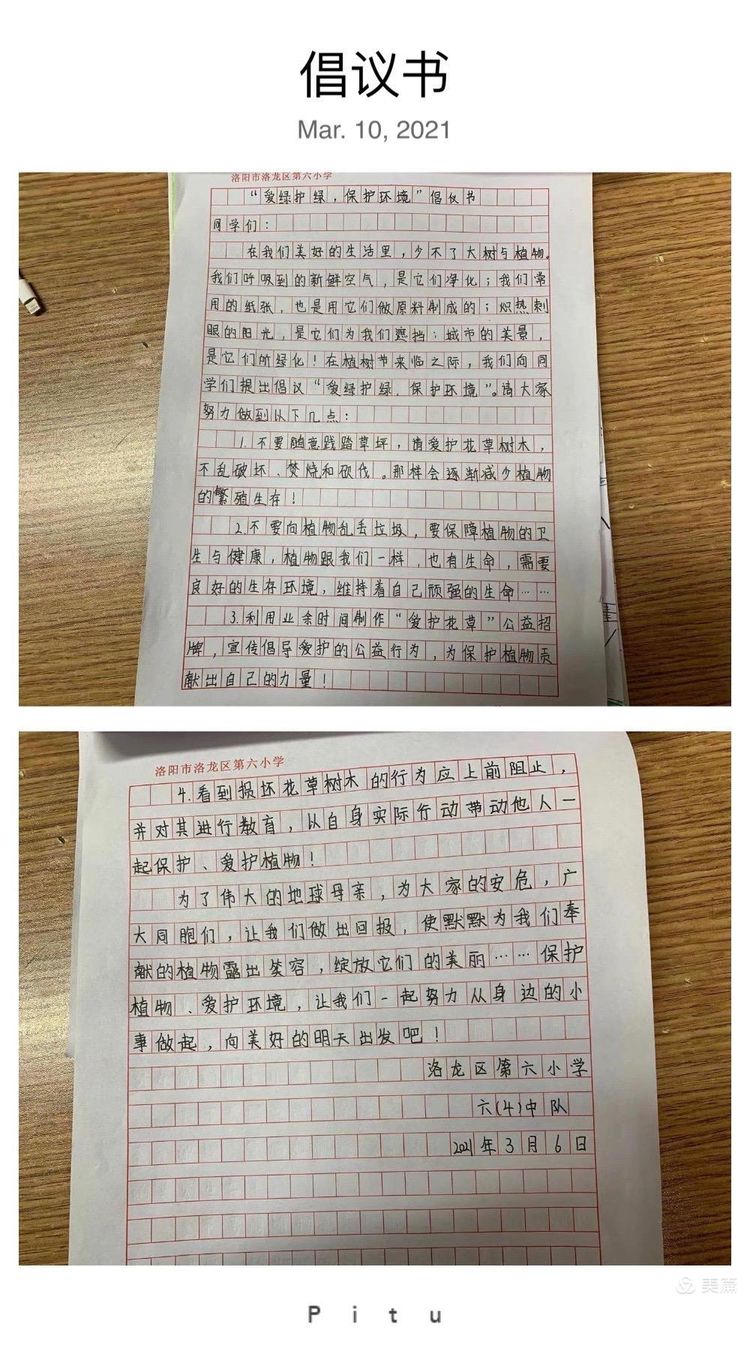 倡议书
Mar. 10, 2021
洛阳市洛龙区第六小学
“爱绿护绿，保护环境”倡议书
同学们：
在我们美好的生活里，少不了大树与植物。
我们呼吸到的新鲜空气，是它们净化；我们常
用的纸张，也是用它们做原料制成的；炽热刺
眼的阳光，是它们为我们遮挡；城市的美景，
是它们所绿化！在植树节来临之际，我们向同
学们提出倡议“爱绿护绿，保护环境”。请大家
努力做到以下几点：
1.不要随意践踏草坪，请爱护花草树木，
不乱破坏、焚烧和砍伐。那样会逐渐减少植物
的繁殖生存！
2.不要向植物乱丢垃圾，要保障植物的卫
生与健康，植物跟我们一样，也有生命，需要
良好的生存环境，维持着自己顽强的生命……
3.利用业余时间制作“爱护花草”公益招
牌，宣传倡导爱护的公益行为，为保护植物贡
献出自己的力量！
洛阳市洛龙区第六小学
4.看到损坏花草树木的行为应上前阻止，
并对其进行教育，从自身实际行动带动他人一
起保护、爱护植物！
为了伟大的地球母亲，为大家的安危，广
大同胞们，让我们做出回报，使默默为我们奉
献的植物露出笑容，绽放它们的美丽……保护
植物、爱护环境，让我们一起努力从身边的小
事做起，向美好的明天出发吧！
洛龙区第六小学
六(4)中队
2021年3月6日
美篇
Pitu